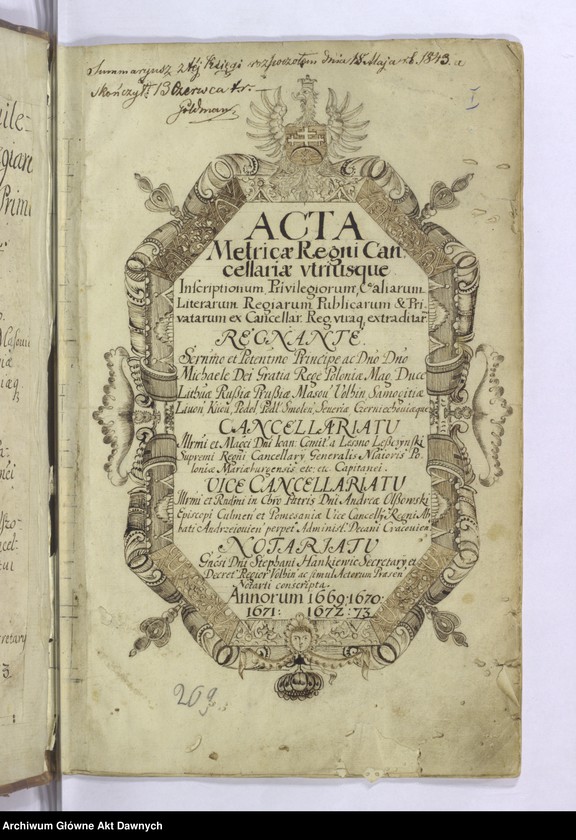 Summaryusz z téj Księgi rozpoczołem dnia 18 Maja r.b. 1843. a
skończył 13 Czerwca t.r.
Goldman
I
ACTA
Metricæ Regni Can-
cellariæ vtriusque
Inscriptionum Privilegiorum, & aliarum
Literarum Regiarum Publicarum & Pri-
vatarum ex Cancellar. Reg. vtraq. extraditar.
REGNANTE.
Sernmo et Potentmo Principe ac Dno Dno
Michaele Dei Gratia Rege Poloniæ Mag. Duce
Lithuæ Russiæ Prussiæ Masou Volhin, Samogitiæ
Liuon Kiiou, Podol Podl Smolen, Seueriæ Czerniechouiæque
CANCELLARIATU
Illrmi et Magci Dni Ioan: Comit: a Lesno Leszczynski
Supremi Regni Cancellarij Generalis Maioris Po-
loniæ Mariæburgensis etc: etc: Capitanei.
VICE CANCELLARIATU
Illrmi et Rndmi in Chro Patris Dni Andreæ Olszowski
Episcopi Culmen: et Pomesaniæ Vice Cancellrij Regni Ab-
bati Andrzeiouien: perpet: Administ: Decani Cracouien:
NOTARIATU
Gnosi Dni Stephani Hankiewic Secretarij et
Decret: Regior Volhin ac simul Actorum Præsen
Notarij conscripta.
Annorum 1669. 1670:
1671: 1672: 73.
209
3.
Archiwum Główne Akt Dawnych